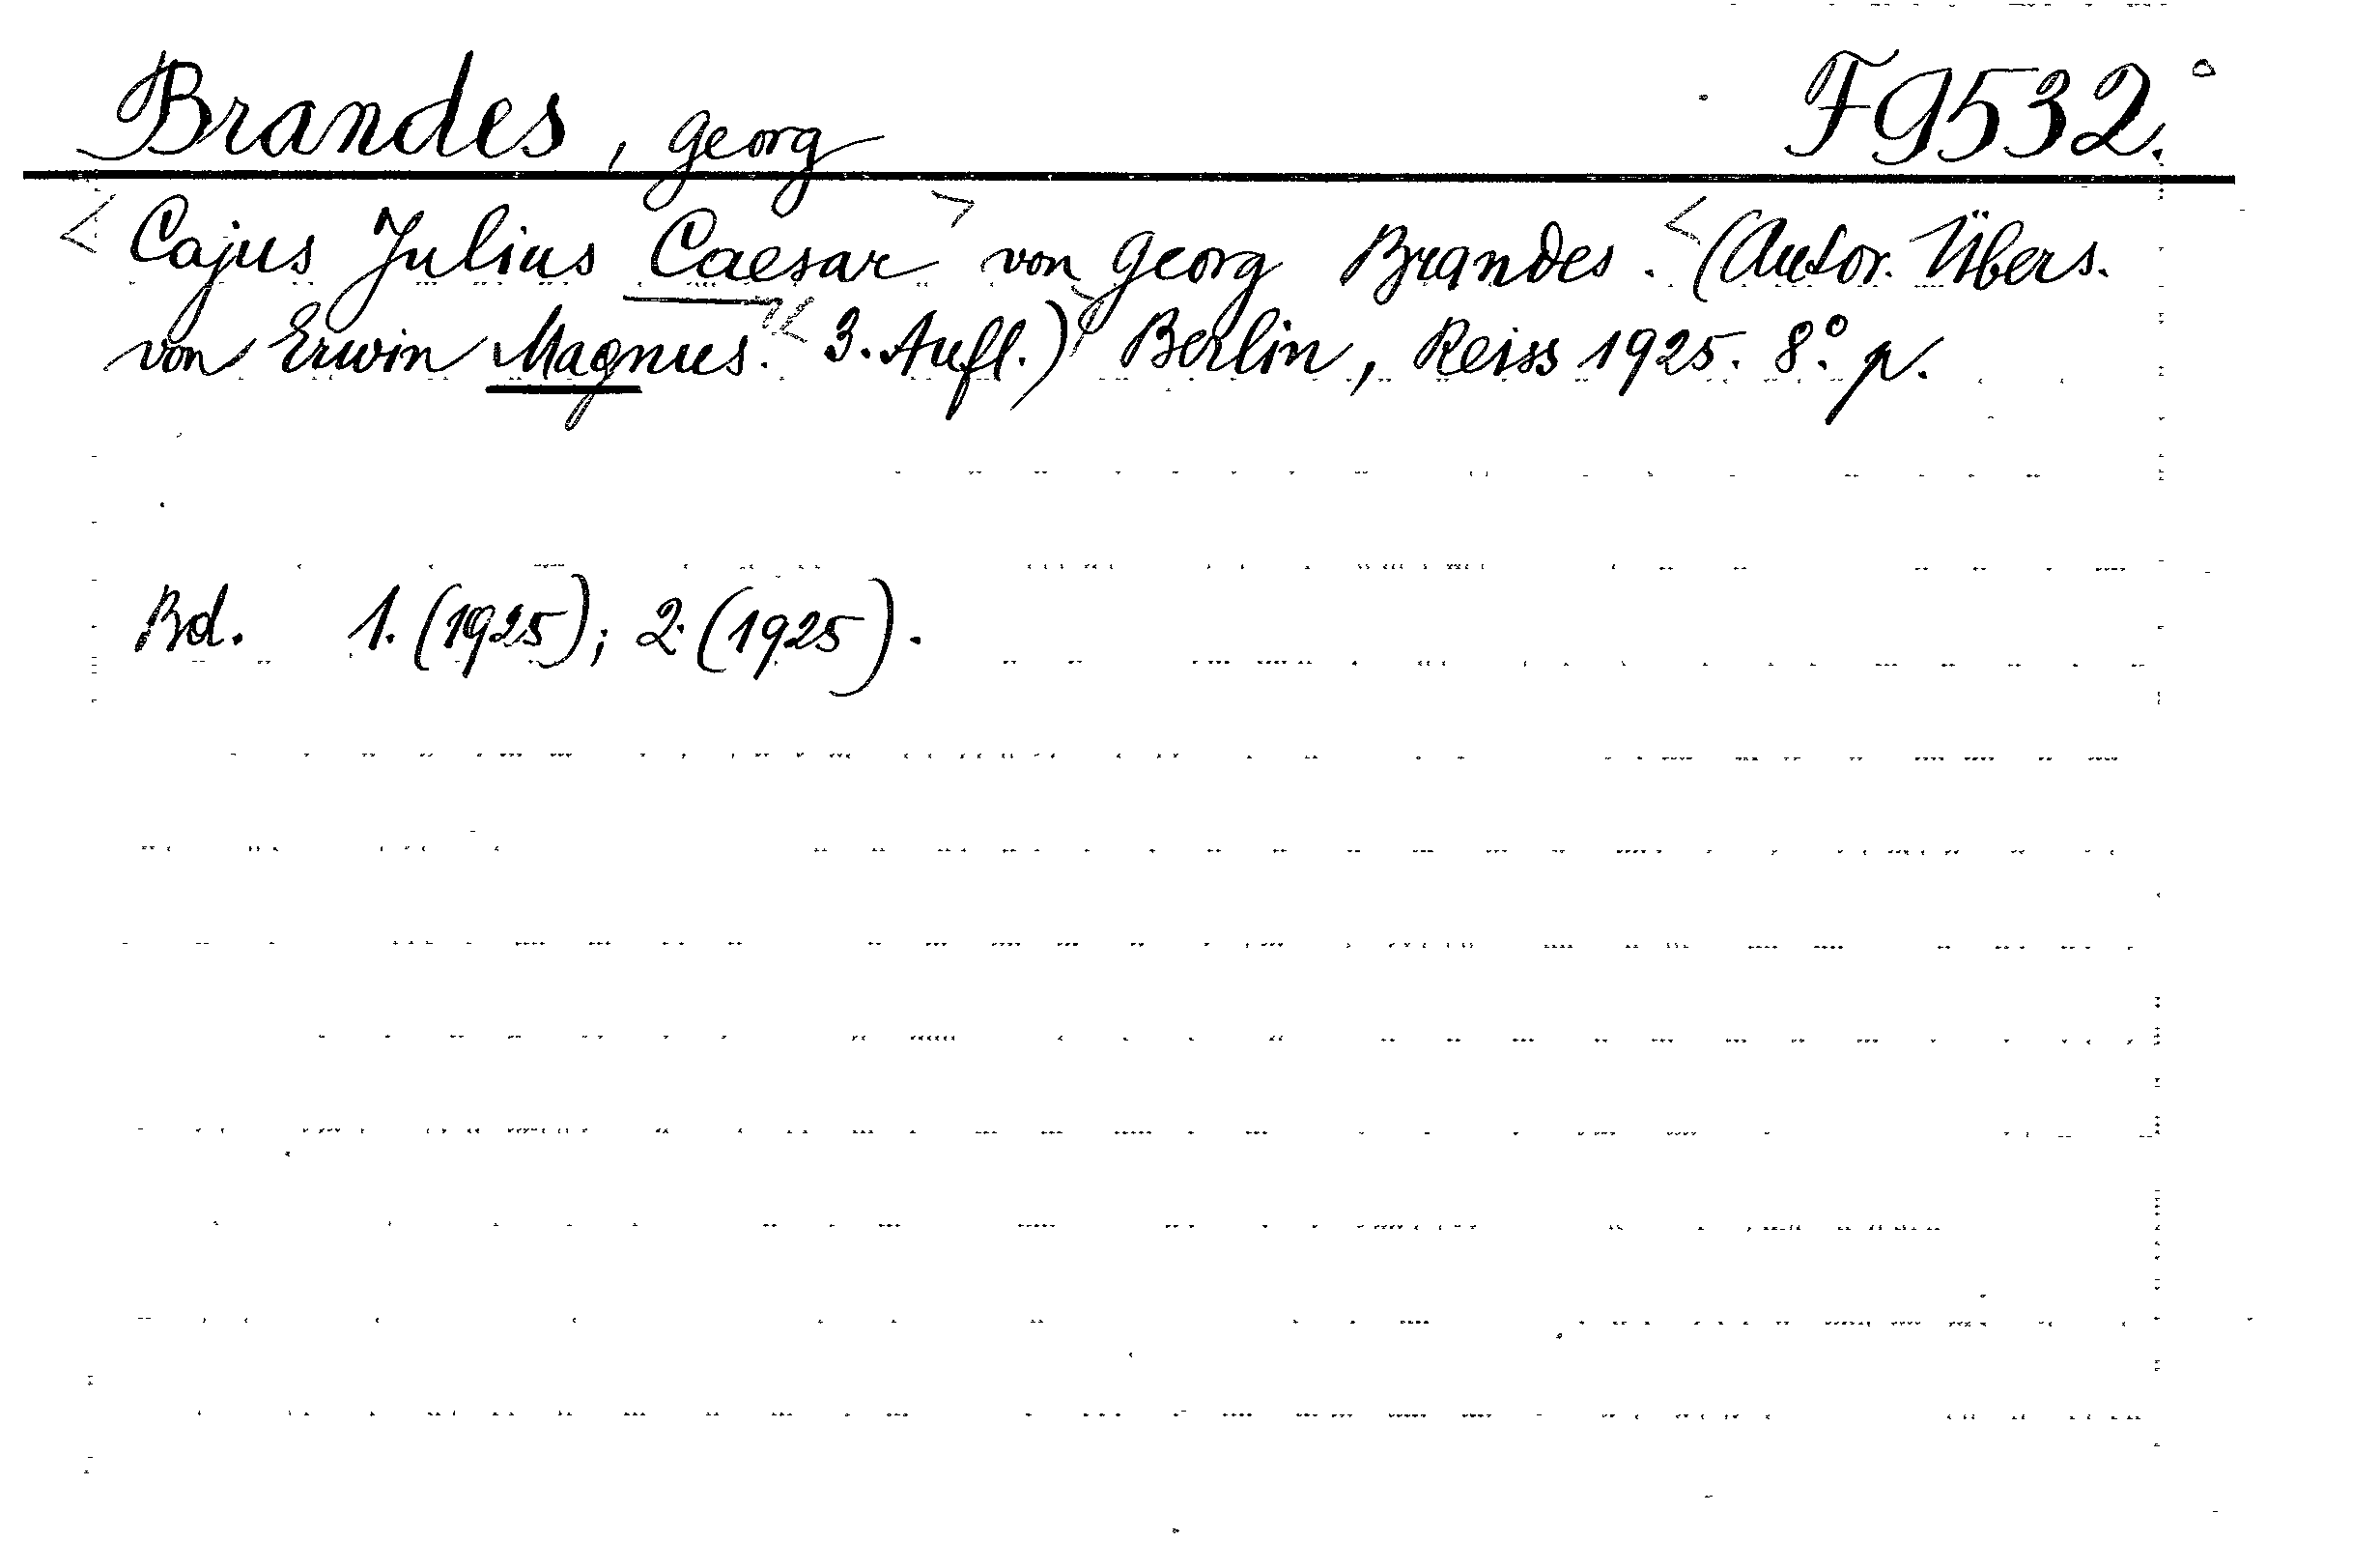 Brandes, Georg F 9532.
<Cajus Julius Caesar> von Georg Brandes. <(Autor. Übers.
von Erwin Magnus.>< 3. Aufl.)> Berlin, Reiss 1925. 8°. p.
Bd. 1. (1925); 2. (1925).